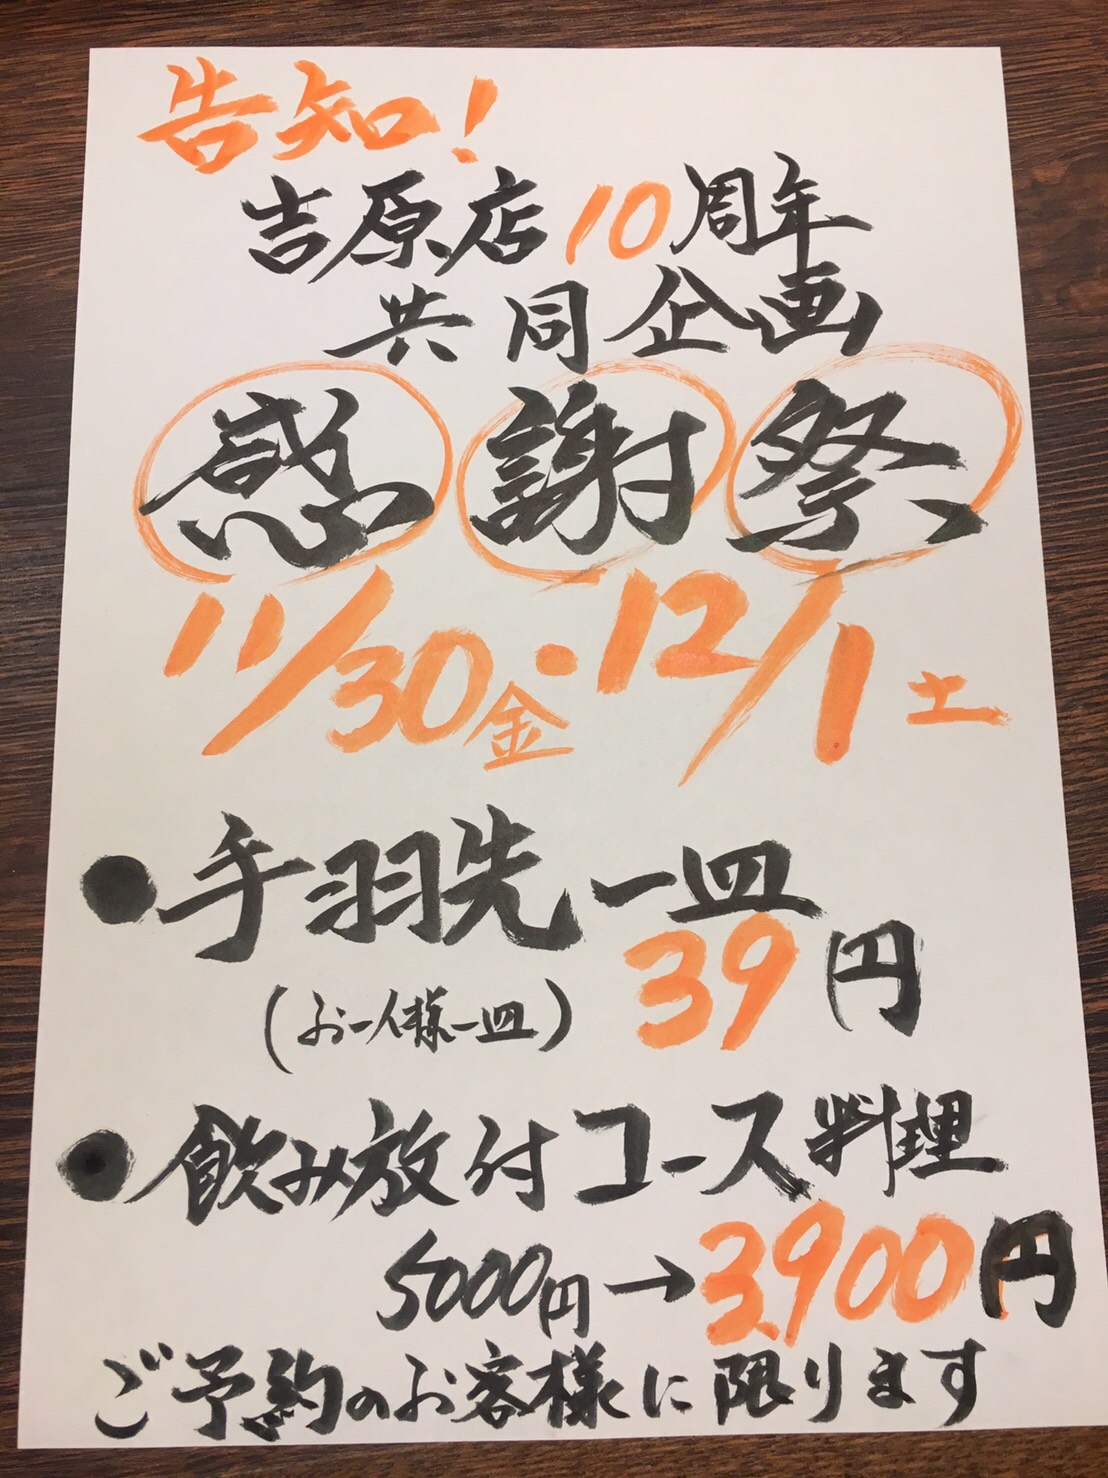 告知！
吉原店10周年
共同企画
感謝祭
11/30金・12/1土
●手羽先一皿
39円
(お一人様一皿)
●飲み放付コース料理
5000円→3,900円
ご予約のお客様に限ります